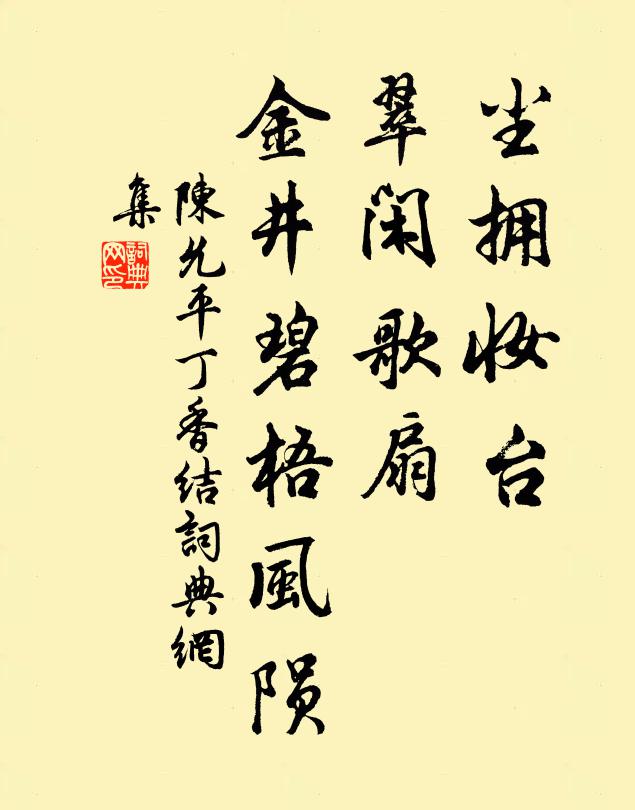 尘拥妆台
翠闲歌扇
金井碧梧風陨
陳允平丁香结詞典網
集
詞典网印